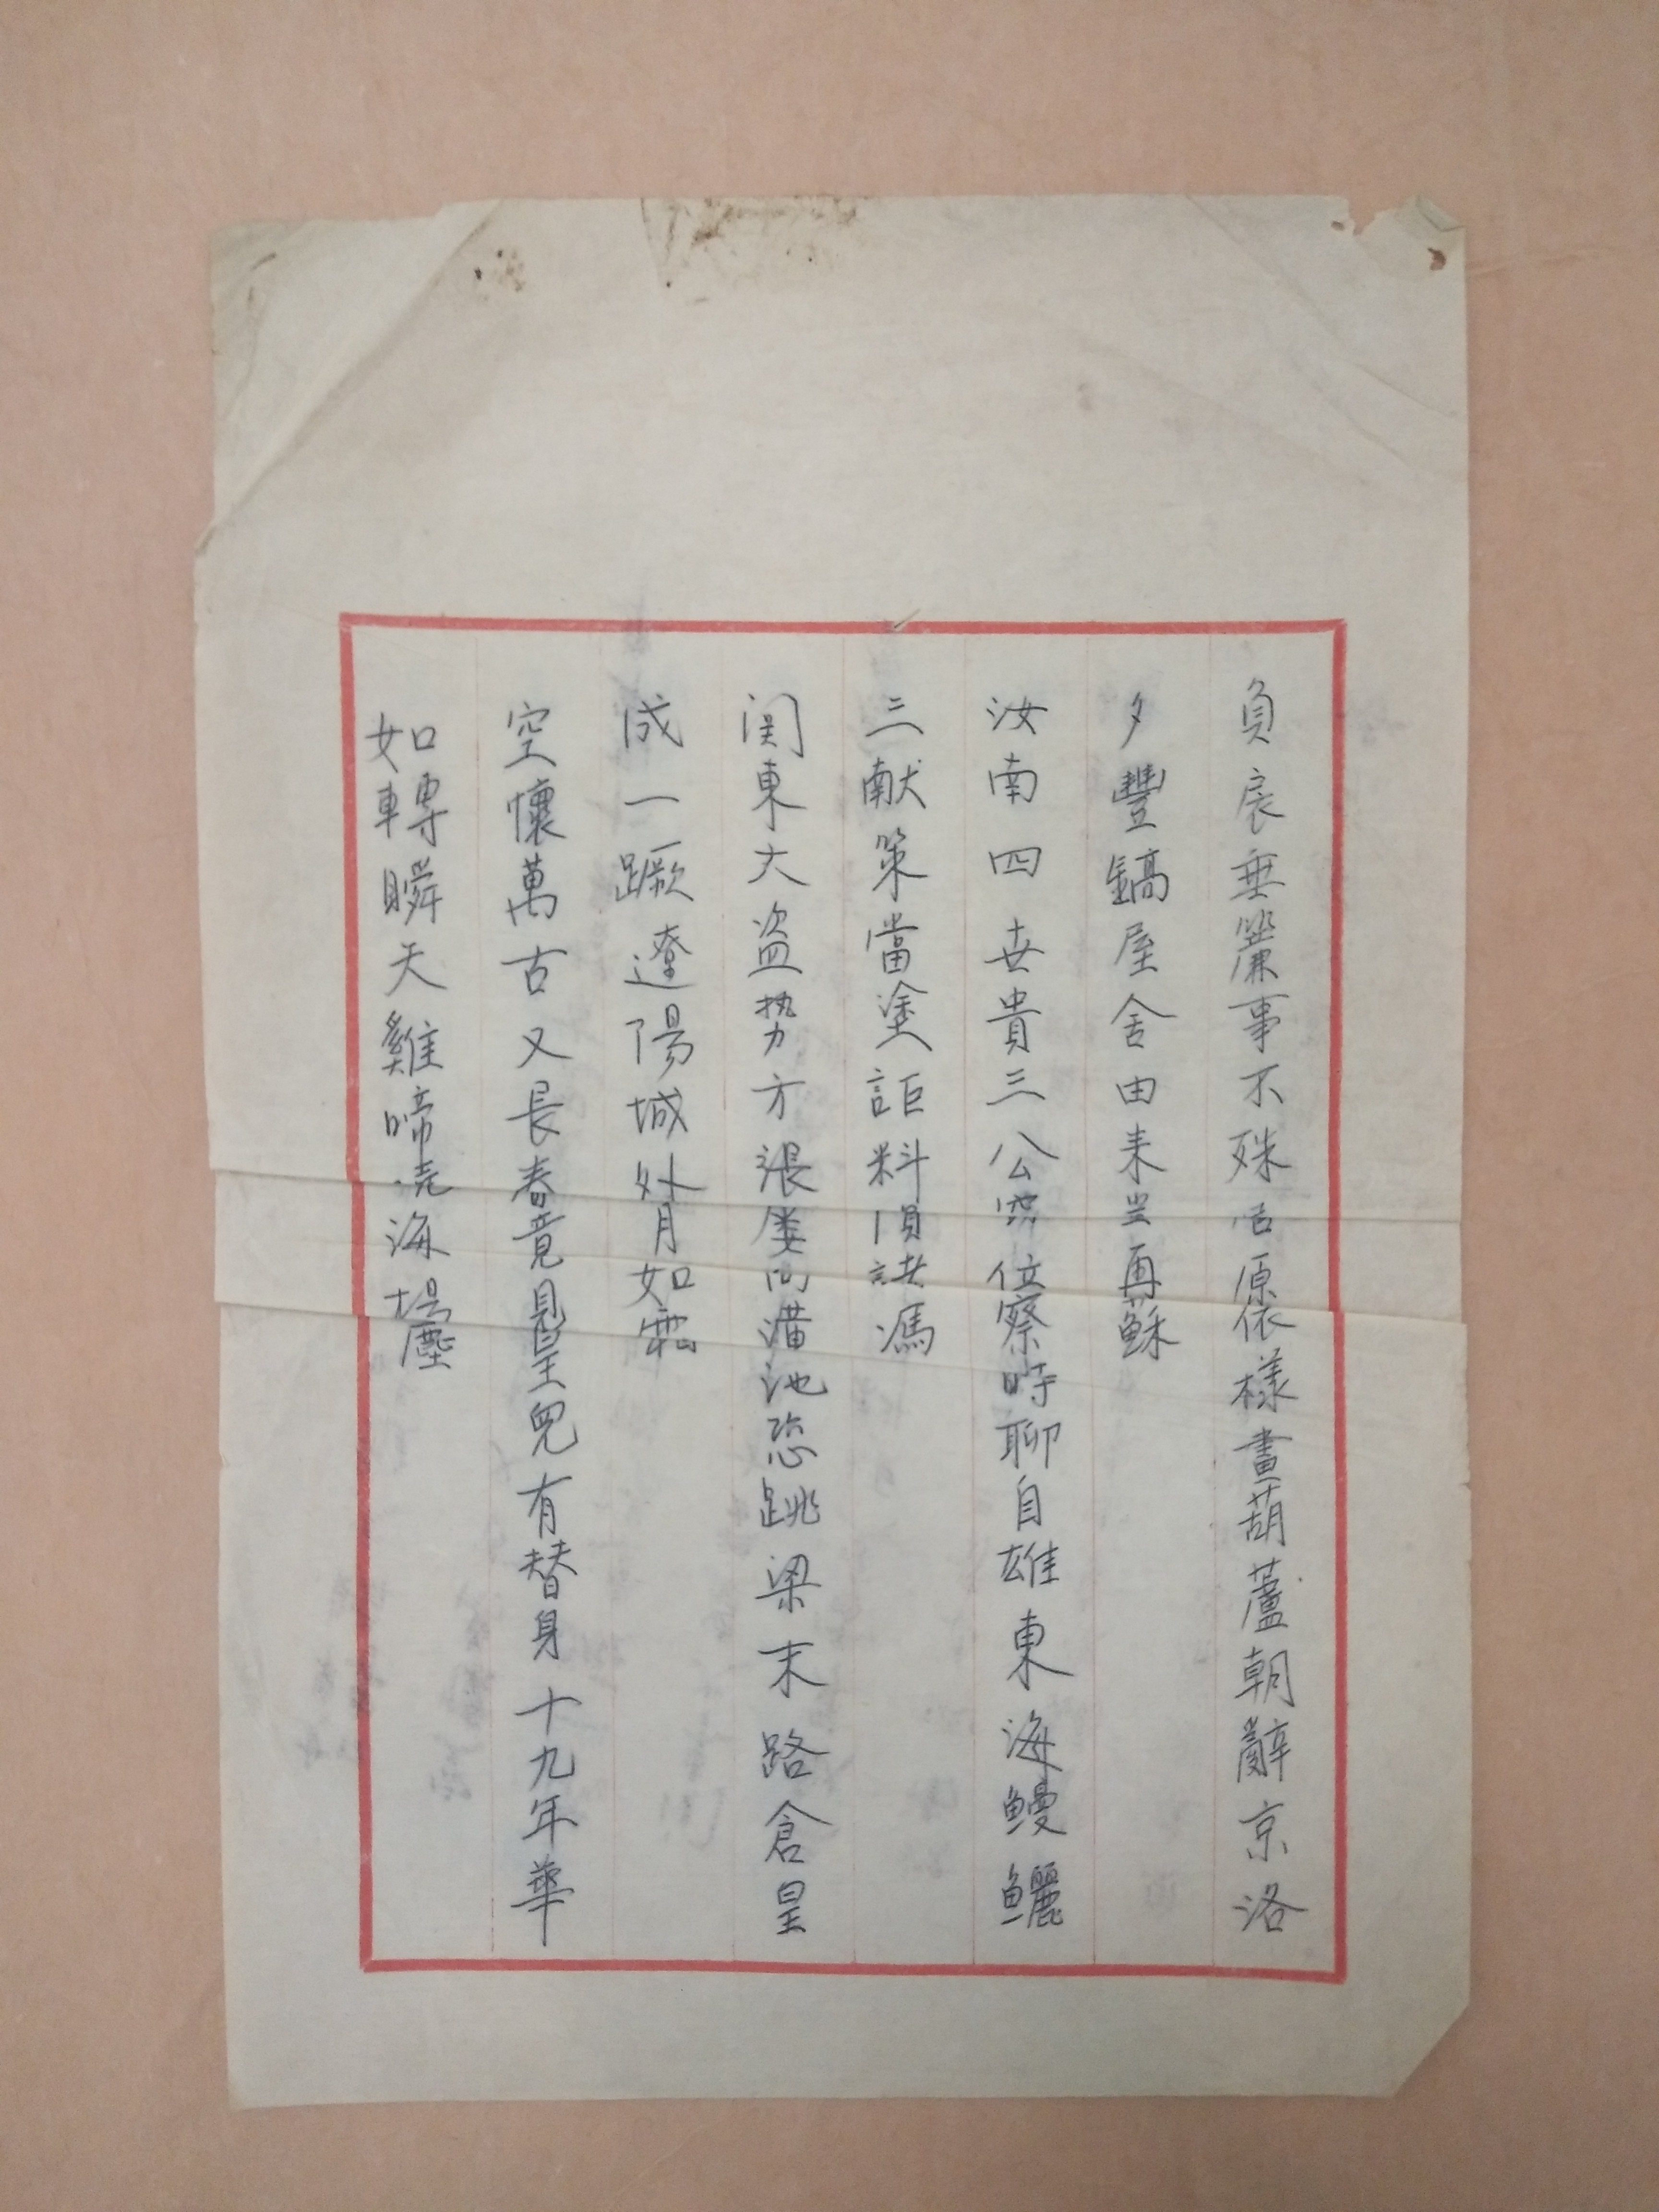 負扆垂簾事不殊 原依樣畫葫蘆朝辭京洛
夕豐鎬屋舍由來豈再蘇
汝南四世貴三公 位察時聊自雄東海鰻鱺
三献策當塗詎料 馮
関東大盜势方張 潢池恣跳梁末路倉皇
成一蹶遼陽城外月如霜
空懷萬古又長春竟見皇兒有替身十九年華
如轉瞬天雞啼 海場塵